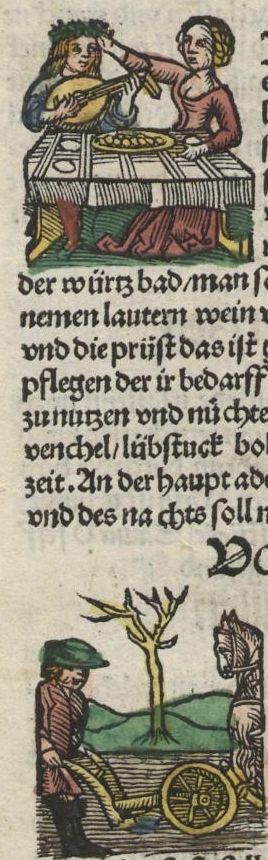 der würtz bad/man s
nemen lautern wein v
vnd die prüst das ist g
pflegen der ir bedarff
zu nutzen vnd nüchte
venchel/lübstuck bo
zeit. An der haupt ade
vnd des nachts soll n
Vo